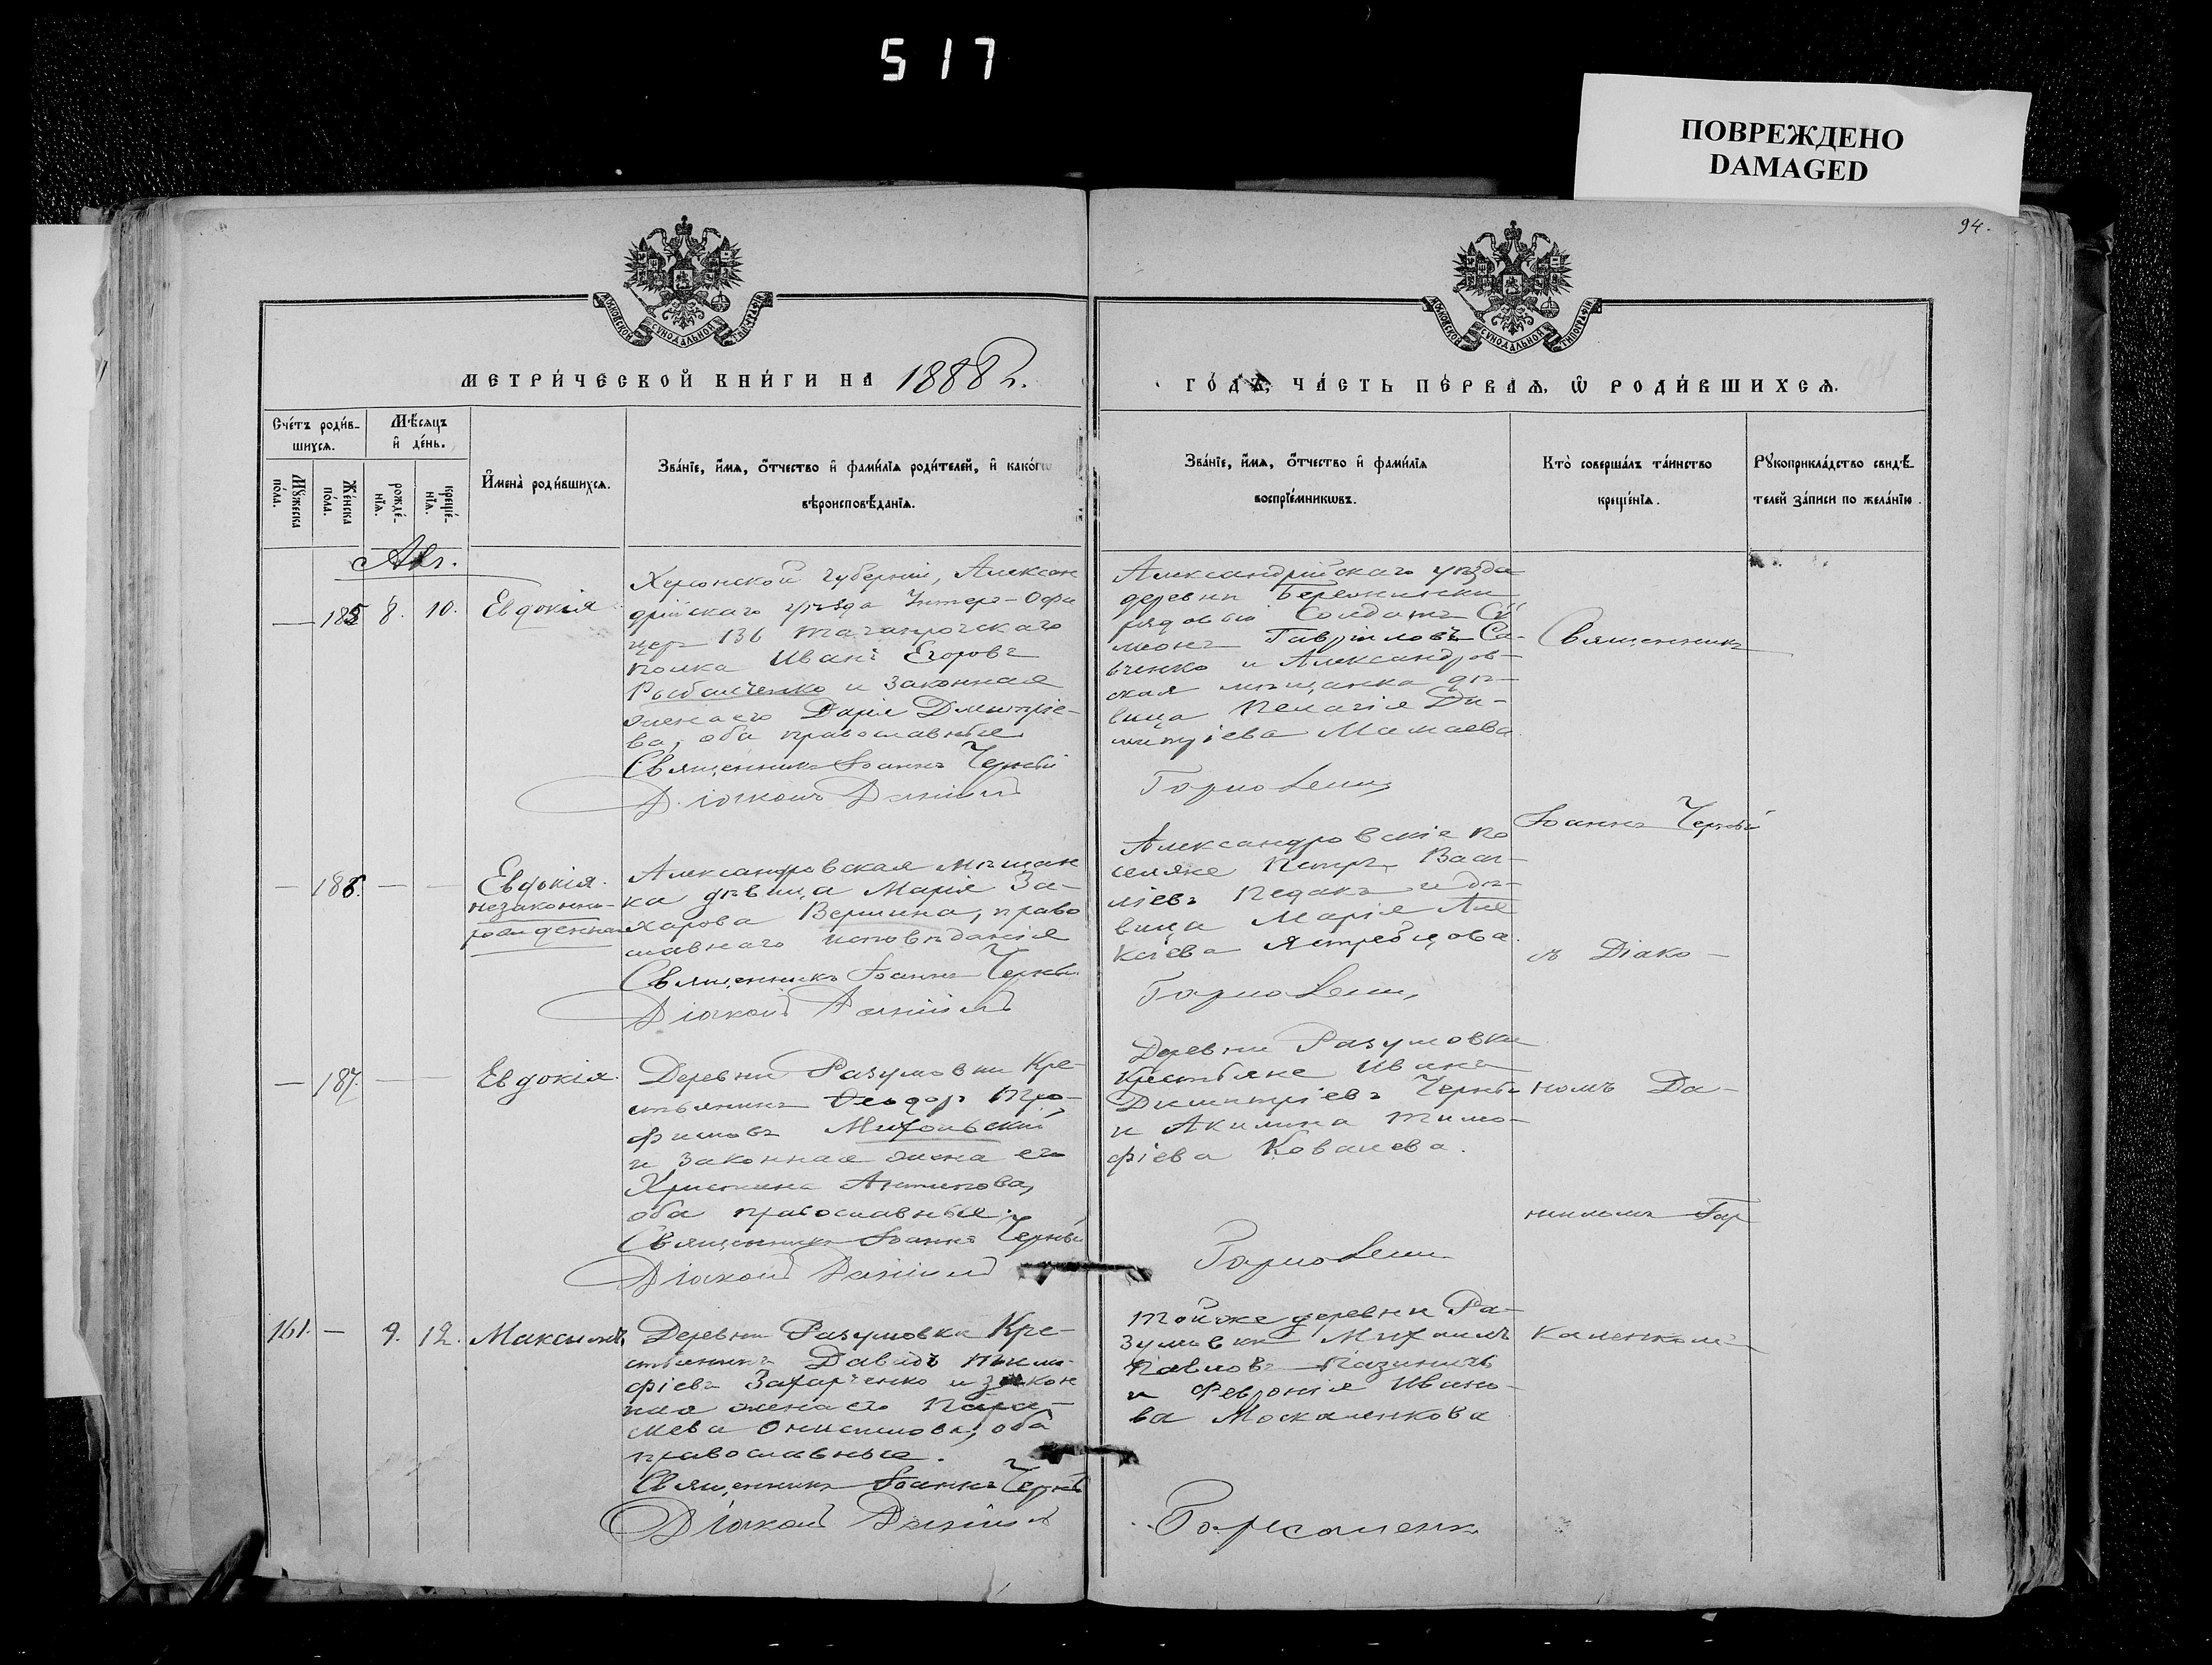 517
ПОВРЕЖДЕНО
DAMAGED
94.
МОСКОВСКОЙ СѴНОДАЛЬНОЙ ТИПОГРАФІИ
МОСКОВСКОЙ СѴНОДАЛЬНОЙ ТИПОГРАФІИ
МЕТРИ́ЧЕСКОЙ КНИ́ГИ НА 1888 г.
ГО́ДЪ, ЧА́СТЬ ПЕ́РВАЯ, Ѡ РОДИ́ВШИХСЯ.
Сче́тъ роди́в-
шихся.
Мѣ́сяцъ
и҆ де́нь.
Мꙋ́жеска
по́ла.
Же́нска
по́ла.
рожде́-
нїя.
креще́-
нїя.
И҆мена̀ роди́вшихся.
Зва́нїе, и҆́мя, ѻ҆́тчество и҆ фами́лїя роди́телей, и҆ како́гѡ
вѣроисповѣ́данїя.
Зва́нїе, и҆́мя, ѻ҆́тчество и҆ фами́лїя
воспрїе́мникѡвъ.
Кто̀ соверша́лъ та́инство
креще́нїя.
Рꙋкоприкла́дство свидѣ́-
телей за́писи по жела́нїю.
Авг.
— 185 8. 10. Евдокія
Херсонской губерніи, Алексан
дрійскаго уѣзда Унтеръ-Офи
церъ 136 Таганрогскаго
полка Иванъ Егоровъ
и законная
жена его Дарія Дмитріе-
ва, оба православные
Священникъ Іоаннъ Черный
Діаконъ Даніилъ
Александрійскаго уѣзда
деревни
рядовой Солдатъ Си
меонъ Гавріиловъ Са-
вченко и Александров-
ская мѣщанка дѣ-
вица Пелагія Ди-
митріева Мамаева
Священникъ
Іоаннъ Черный
— 186. — — Евдокія.
незаконно-
рожденная
Александровская мѣщан
ка дѣвица Марія За-
харова Вершина, право
славнаго исповѣданія
Священникъ Іоаннъ Черный
Діаконъ Даніилъ
Александровскіе по
селяне Петръ Васи-
ліевъ Педакъ и дѣ-
вица Марія Але
ксіева Ястребцова.
съ Діако-
— 187. — — Евдокія.
Деревни Разумовки Кре-
стьянинъ Ѳеодоръ Тро-
фимовъ
и законная жена его
Христина Антипова,
оба православные.
Священникъ Іоаннъ Черный
Діаконъ Даніилъ
Деревни Разумовки
Крестьяне Иванъ
Димитріевъ Черный
и Акилина Тимо-
фіева Ковалева.
номъ Да-
ниломъ Гар
161. — 9. 12. Максимъ
Деревни Разумовки Кре-
стьянинъ Давидъ Тимо-
фіевъ Захарченко и закон
ная жена его Пара-
скева Онисимова, оба
православные.
Священникъ Іоаннъ Черный
Діаконъ Даніилъ
Тойже деревни Ра-
зумовки Михаилъ
Павловъ
и Февронія Ивано-
ва Москаленкова
каленкомъ